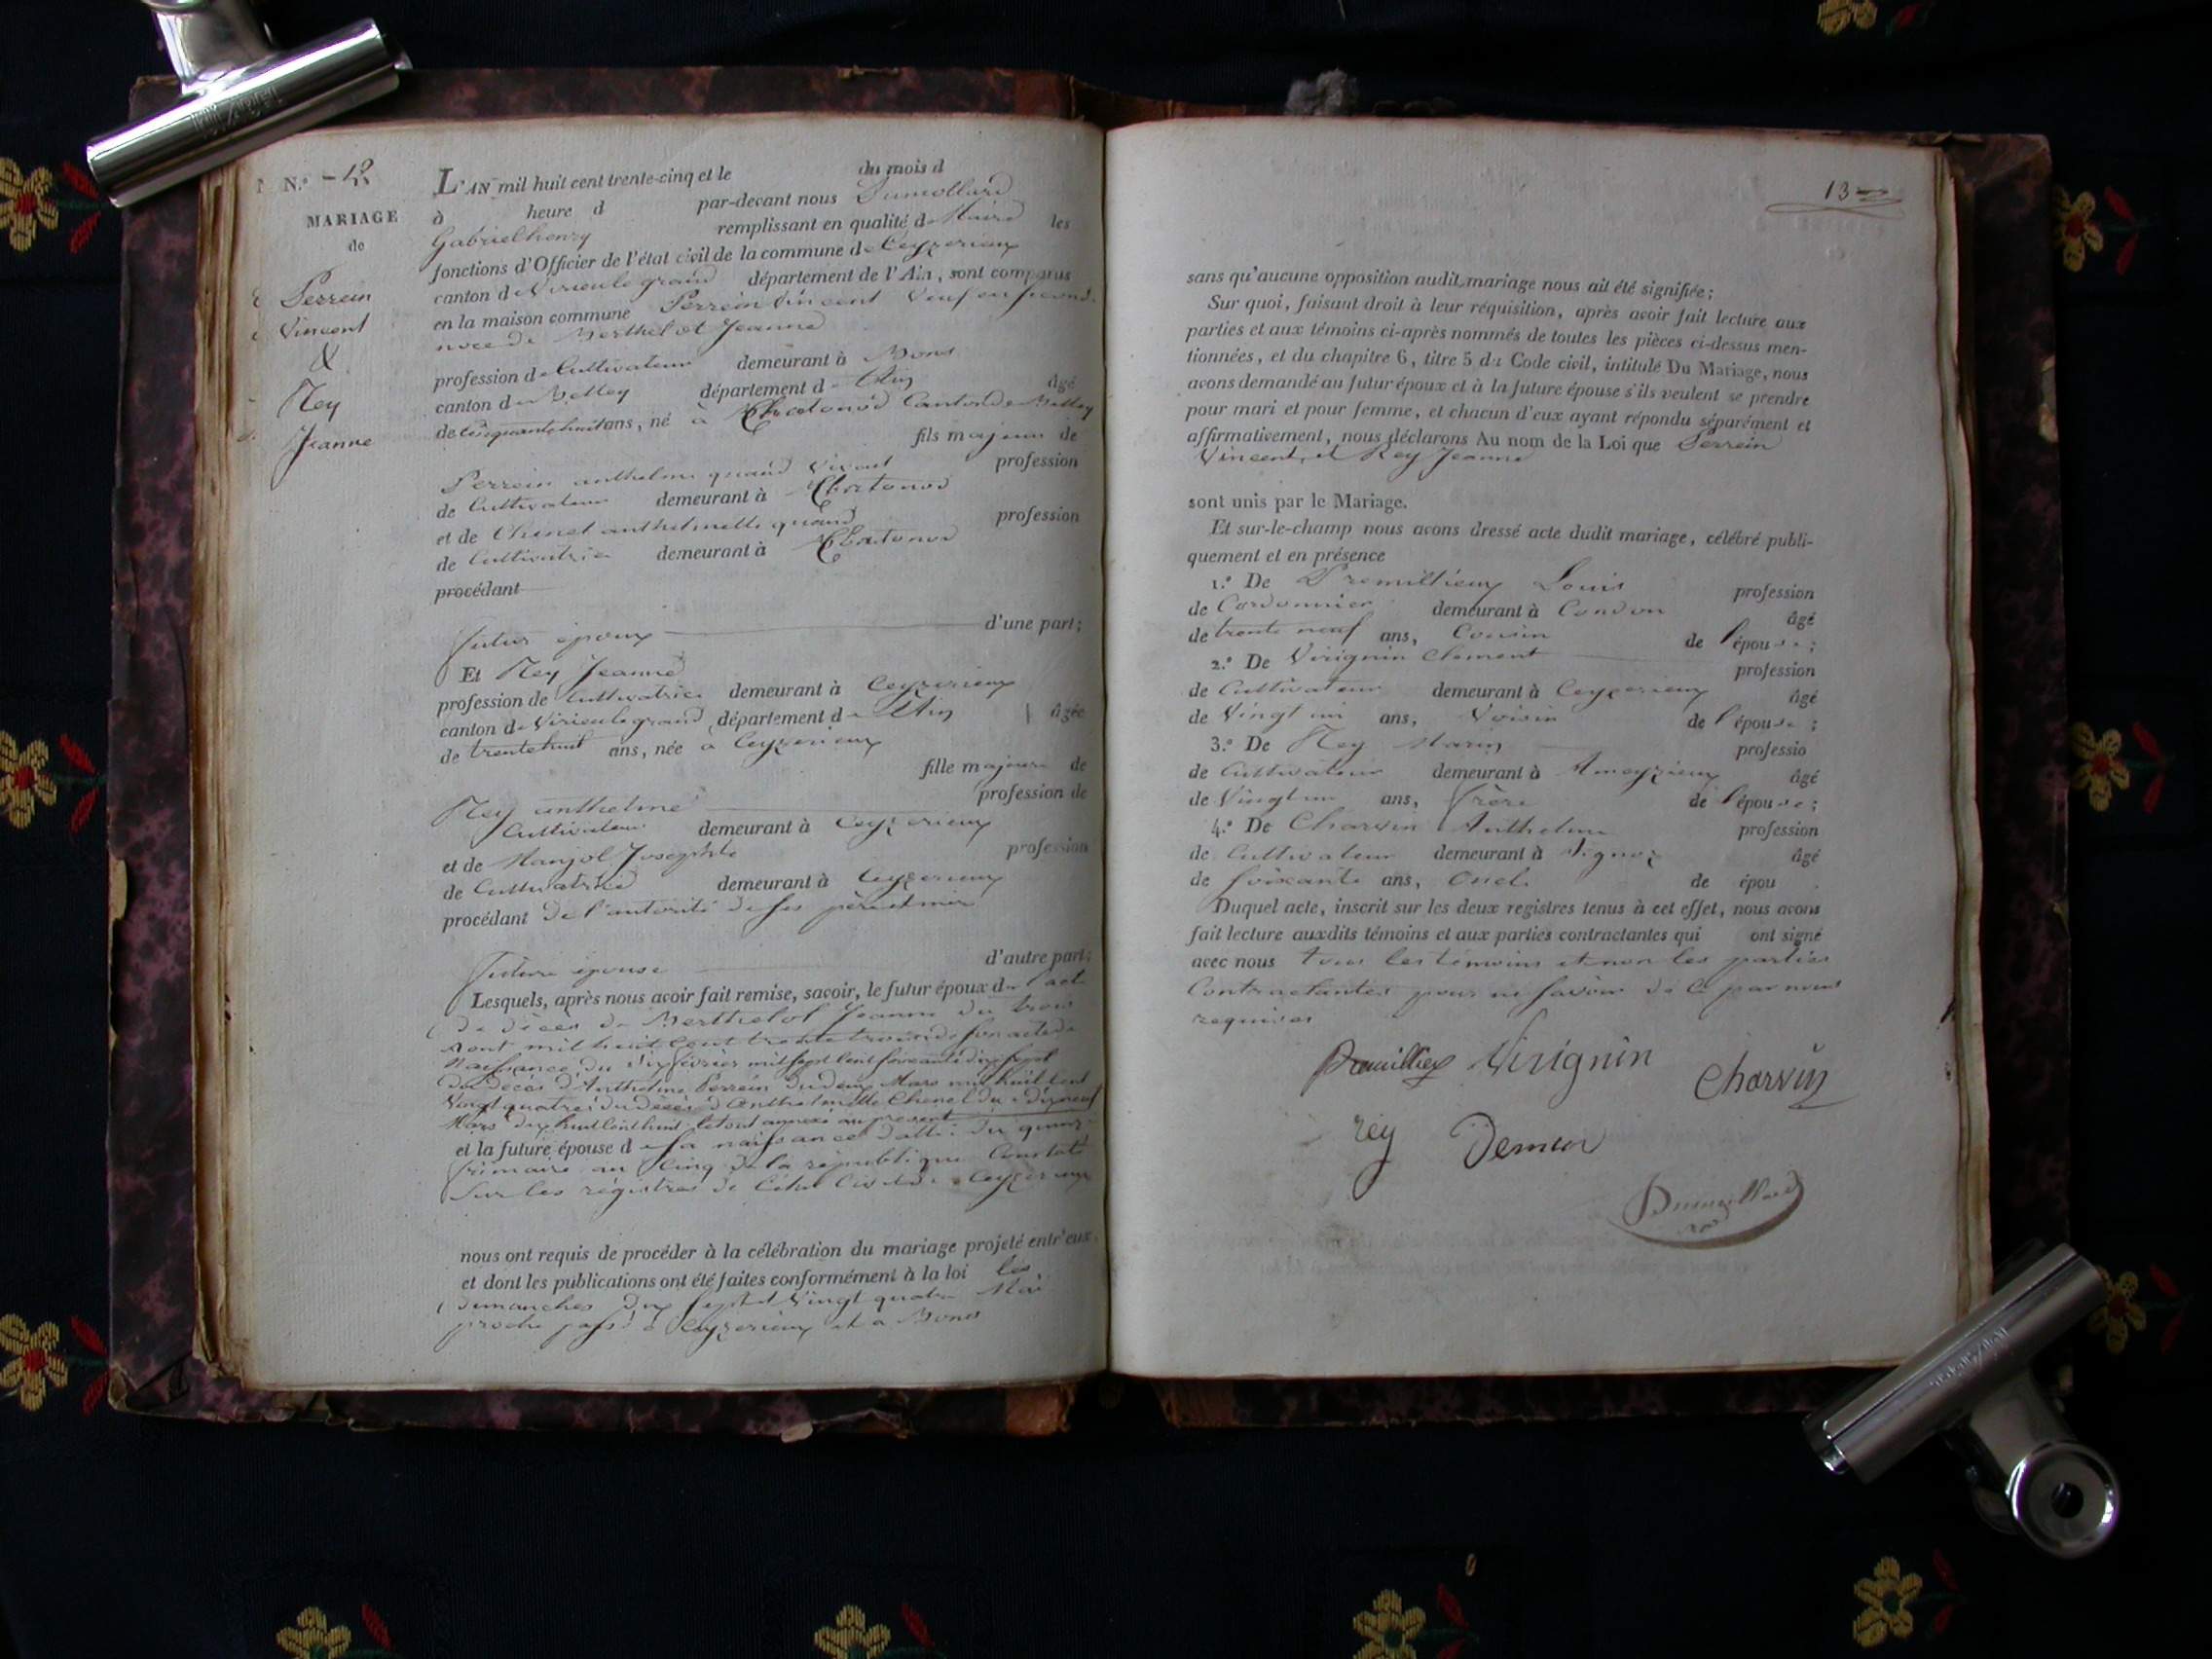 N.º
MARIAGE
de
Perrein
Vincent
&
Rey
Jeanne
L'AN mil huit cent trente-cinq et le du mois d
à heure d par-devant nous Dumollard
Gabriel henry remplissant en qualité de Maire les
fonctions d'Officier de l'état civil de la commune de Ceyzerieux
canton de Virieu le grand département de l'Ain, sont comparus
en la maison commune Perrein Vincent Veuf en second
noce de Berthelot Jeanne
profession de Cultivateur demeurant à Bons
canton de Belley département de l'Ain âgé
de cinquante huit ans, né à Chatonod Canton de Belley
fils majeur de
Perrein anthelme quand Vivant profession
de Cultivateur demeurant à Chatonod
et de Chenel anthelmette quand profession
de Cultivatrice demeurant à Chatonod
procédant
futur époux d'une part;
Et Rey Jeanne
profession de Cultivatrice demeurant à Ceyzerieux
canton de Virieu le grand département de l'Ain âgée
de trente huit ans, née à Ceyzerieux
fille majeure de
Rey anthelme profession de
Cultivateur demeurant à Ceyzerieux
et de Manjol Josephte profession
de Cultivatrice demeurant à Ceyzerieux
procédant de l'autorité de ses père et mère
future épouse d'autre part;
Lesquels, après nous avoir fait remise, savoir, le futur époux de l'acte
de décès de Berthelot Jeanne du trois
aout mil huit cent trente trois de son acte de
Naissance du six février mil sept cent soixante dix sept
du décès d'Anthelme Perrein du deux Mars mil huit cent
Vingt quatre du décès d'Anthelmette Chenel du dixneuf
Mars dix huit cent huit le tout annexé au present
et la future épouse de sa naissance datté du quinze
frimaire an Cinq de la république Constaté
Sur les régistres de l'état Civil de Ceyzerieux
nous ont requis de procéder à la célébration du mariage projeté entr'eux
et dont les publications ont été faites conformément à la loi les
dimanches dix sept et Vingt quatre Mai
proche passé à Ceyzerieux et a Bons
13
sans qu'aucune opposition audit mariage nous ait été signifiée;
Sur quoi, faisant droit à leur réquisition, après avoir fait lecture aux
parties et aux témoins ci-après nommés de toutes les pièces ci-dessus men-
tionnées, et du chapitre 6, titre 5 du Code civil, intitulé Du Mariage, nous
avons demandé au futur époux et à la future épouse s'ils veulent se prendre
pour mari et pour femme, et chacun d'eux ayant répondu séparément et
affirmativement, nous déclarons Au nom de la Loi que Perrein
Vincent, et Rey Jeanne
sont unis par le Mariage.
Et sur-le-champ nous avons dressé acte dudit mariage, célébré publi-
quement et en présence
1.º De Premillieux Louis profession
de Cordonnier demeurant à Condon âgé
de trente neuf ans, Cousin de l'épouse;
2.º De Virignin Clement profession
de Cultivateur demeurant à Ceyzerieux âgé
de Vingt un ans, Voisin de l'épouse;
3.º De Rey Marin professio
de Cultivateur demeurant à Ameyzieux âgé
de Vingt un ans, frère de l'épouse;
4.º De Charvin Anthelme profession
de Cultivateur demeurant à âgé
de soixante ans, Oncle de épou
Duquel acte, inscrit sur les deux registres tenus à cet effet, nous avons
fait lecture auxdits témoins et aux parties contractantes qui ont signé
avec nous tous les témoins et non les parties
Contractantes pour ne savoir de ce par nous
requises
Premillieux Virignin Charvin
rey
Dumollard